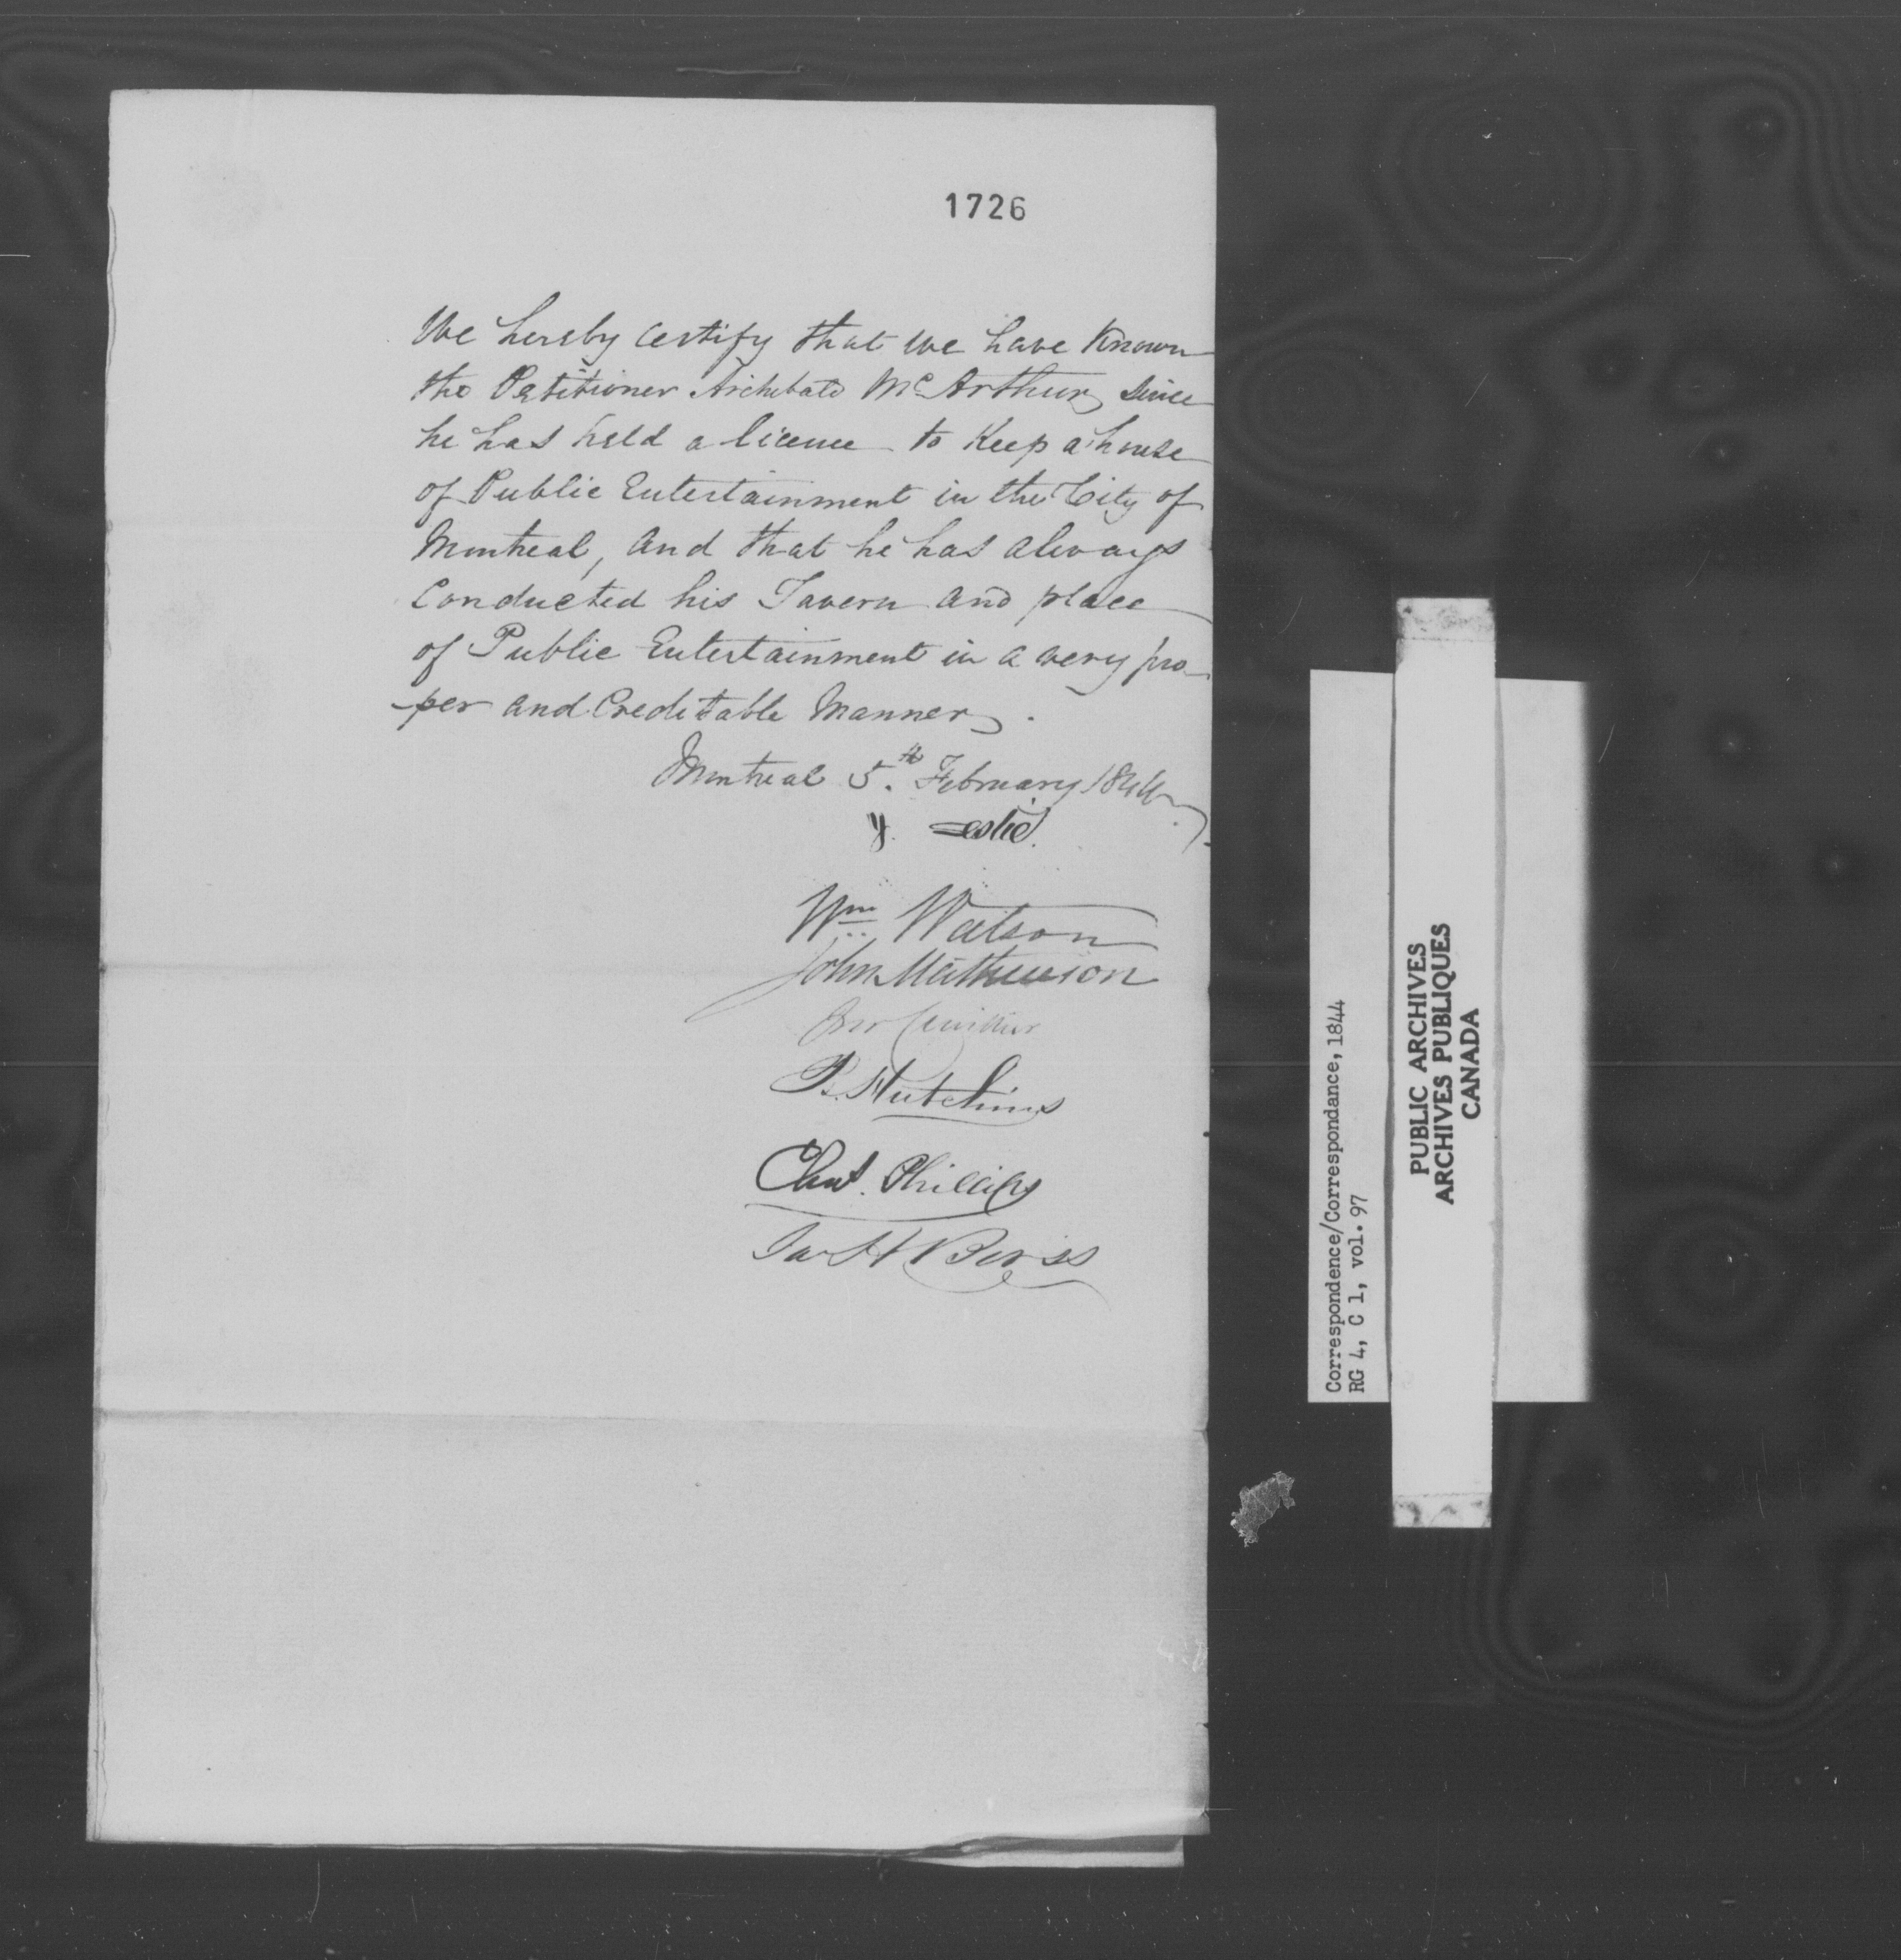 1726
We hereby certify that we have Known
the Petitioner Archibald Mc Arthur, since
he has held a licence to Keep a house
of Public Entertainment in the City of
Montreal, and that he has always
Conducted his Tavern and place
of Public Entertainment in a very pro
-per and Creditable Manner.
Montreal 5.th February 1844
J. Leslie.
Wm Watson
John Mathewson
B. Hutchins
Chas. Phillips
H
Correspondence/Correspondance, 1844
RG 4, C 1, vol. 97
PUBLIC ARCHIVES
ARCHIVES PUBLIQUES
CANADA